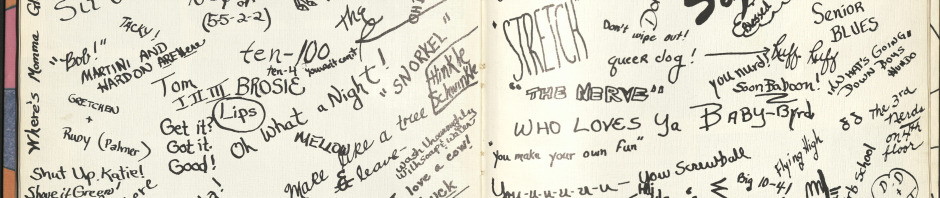 Where's Momma
(55-2-2)
The
TACKY!
"Bob!"
MARTINI AND
WARDON ARE Here
ten-100
ten-4 you ain't can't
GRETCHEN
+
Rudy (Palmer)
Tom
I II III BROSIE
Lips
Get it?
Got it.
Good!
Oh What a Night!
"SNORKEL"
Hinkle
Schwinkle
MELLOW
Make like a tree
& leave-
Wash thoroughly
with soap & water
love a cow!
Shut Up, Katie!
Shove it Green!
STRETCH
Don't wipe out!
queer dog!
you nurd!
Ruff Ruff
Soon Baboon!
Senior
BLUES
"WHAT'S GOING
DOWN BOYS
"THE NERVE"
WHO LOVES Ya BABY-Byrd
"you make your own fun"
The 3rd
Nerds
on 4th
floor
You-u-u-u-u-
You Screwball
Big 10-4!
Flying High
School